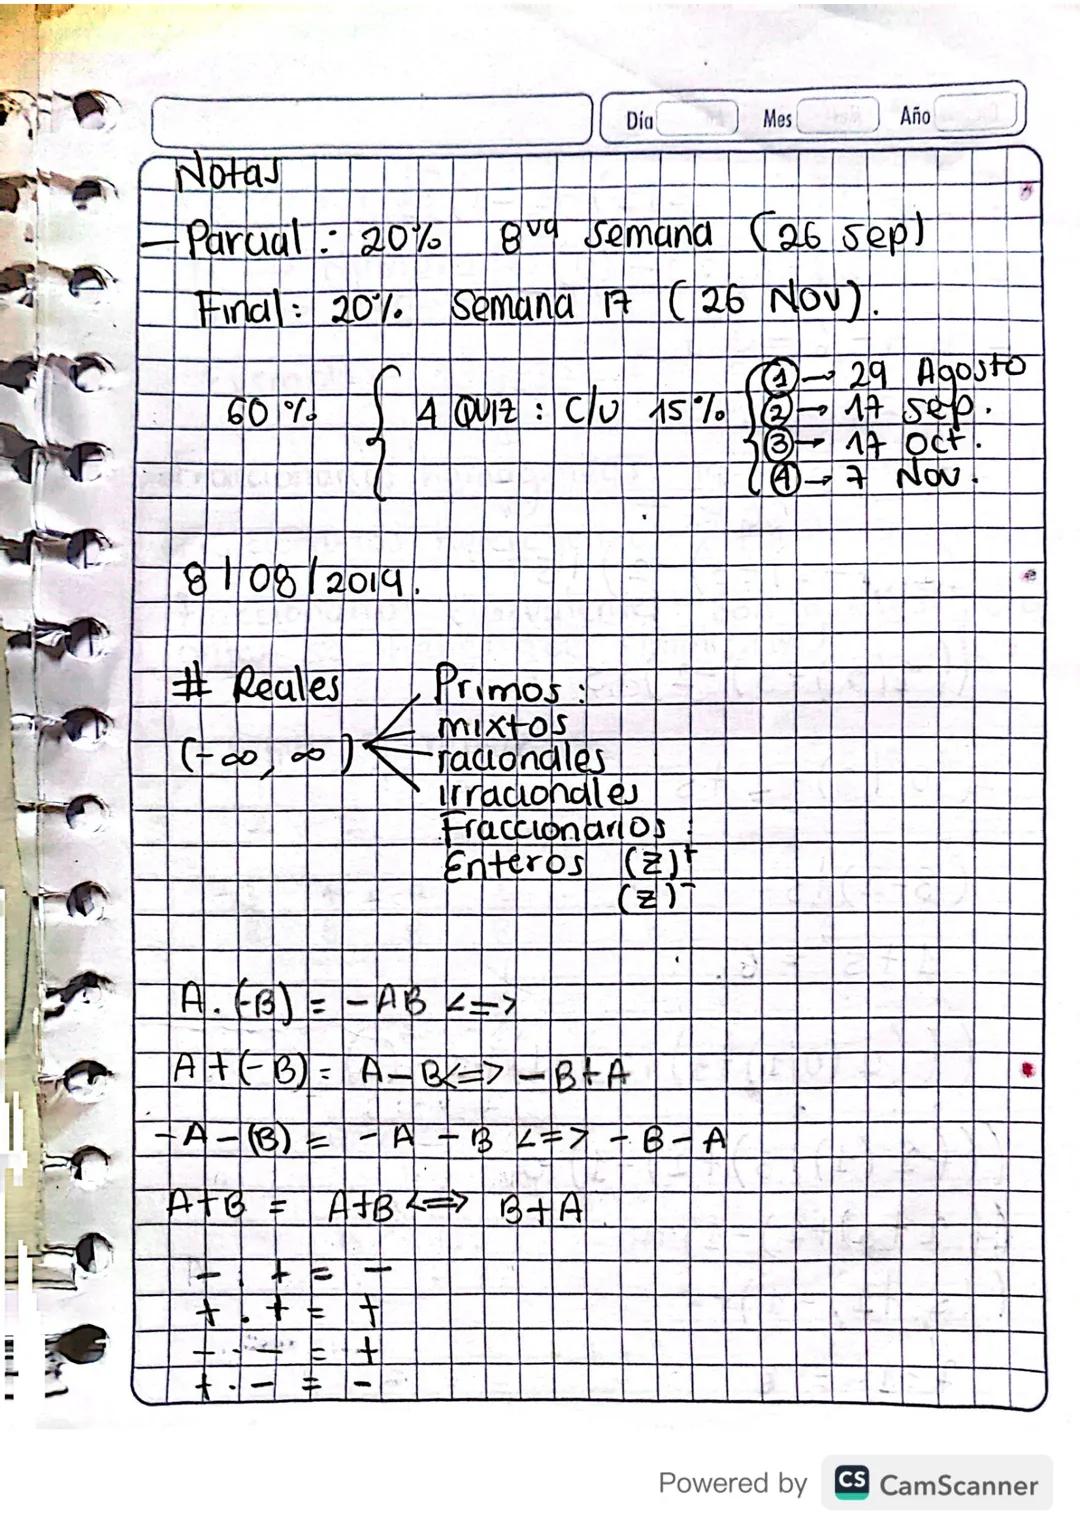 Día Mes Año
Notas
- Parcial : 20% 8va semana (26 sep)
Final : 20%. Semana 17 (26 Nov).
60 % { 4 QUIZ : c/u 15 % { ① → 29 Agosto
② → 17 sep.
③ → 17 oct.
④ → 7 Nov.
8/08/2019.
# Reales Primos :
mixtos
(-∞, ∞) racionales
irracionales
Fraccionarios :
Enteros (Z)+
(Z)-
A . (-B) = -AB <=>
A + (-B) = A - B <=> - B + A
-A - (B) = - A - B <=> - B - A
A + B = A + B <=> B + A
- . + = -
+ . + = +
- . - = +
+ . - = -
Powered by CS CamScanner